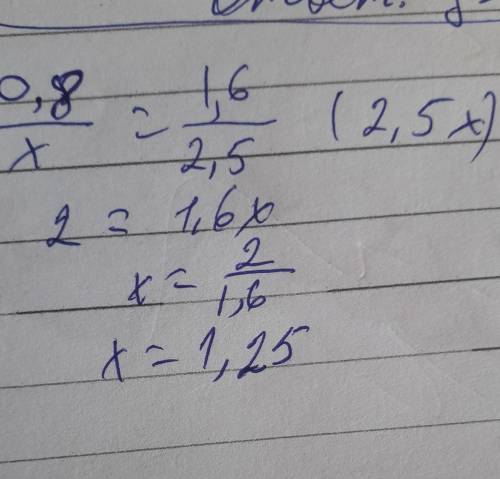 0,8/x = 1,6/2,5 (2,5x)
2 = 1,6x
x = 2/1,6
x = 1,25